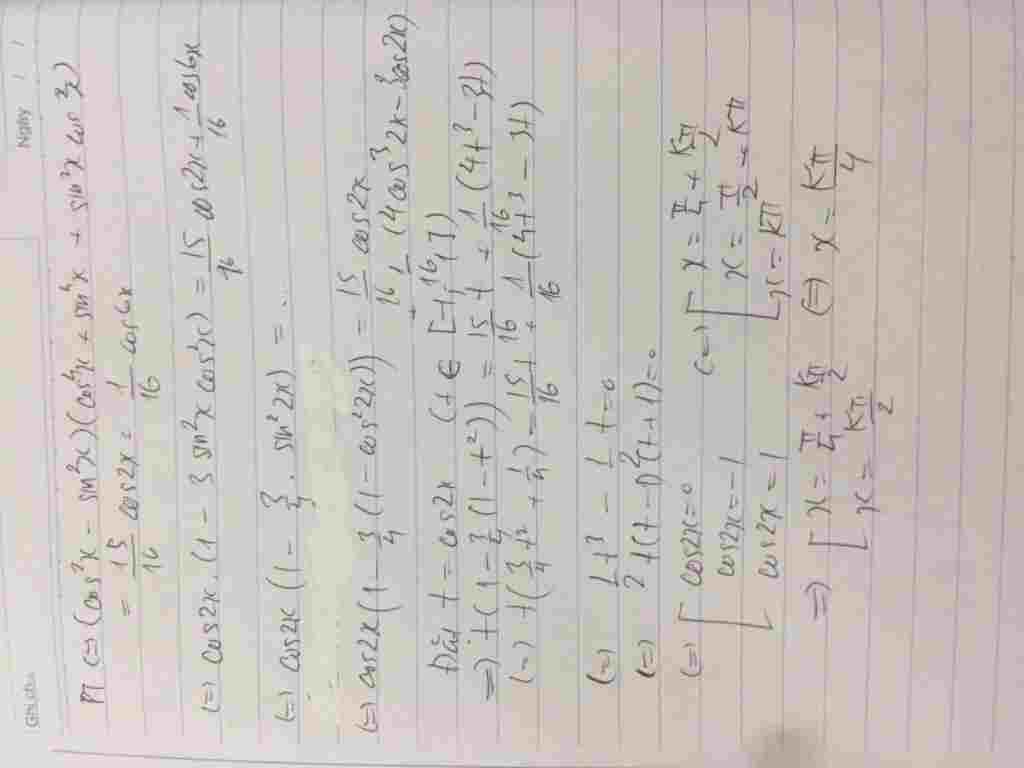 Ngày / /
PT (=) (cos²x - sin²x)(cos⁴x + sin⁴x + sin²x cos²x)
= 15/16 cos2x + 1/16 cos6x
(=) cos2x.(1 - 3 sin²x cos²x) = 15/16 cos2x + 1/16 cos6x
(=) cos2x (1 - 3/4 . sin²2x) = ...
(=) cos2x (1 - 3/4 (1 - cos²2x)) = 15/16 cos2x
+ 1/16 (4cos³2x - 3cos2x)
Đặt t = cos2x (t ∈ [-1; 1])
=) t(1 - 3/4(1 - t²)) = 15/16 t + 1/16 (4t³ - 3t)
(=) t(3/4 t² + 1/4) = 15/16 t + 1/16 (4t³ - 3t)
(=) 1/2 t³ - 1/2 t = 0
(=) t(t - 1)(t + 1) = 0
(=) [ cos2x = 0 (=) [ x = π/4 + Kπ/2
cos2x = -1 x = π/2 + Kπ
cos2x = 1 x = Kπ
=) [ x = π/4 + Kπ/2 (=) x = Kπ/4
x = Kπ/2